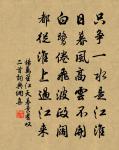 只爭一水是江淮
日暮風高雲不開
白鷺倦飛波政闊
都從淮上過江來
楊萬里江天暮景有嘆
二首詞典網